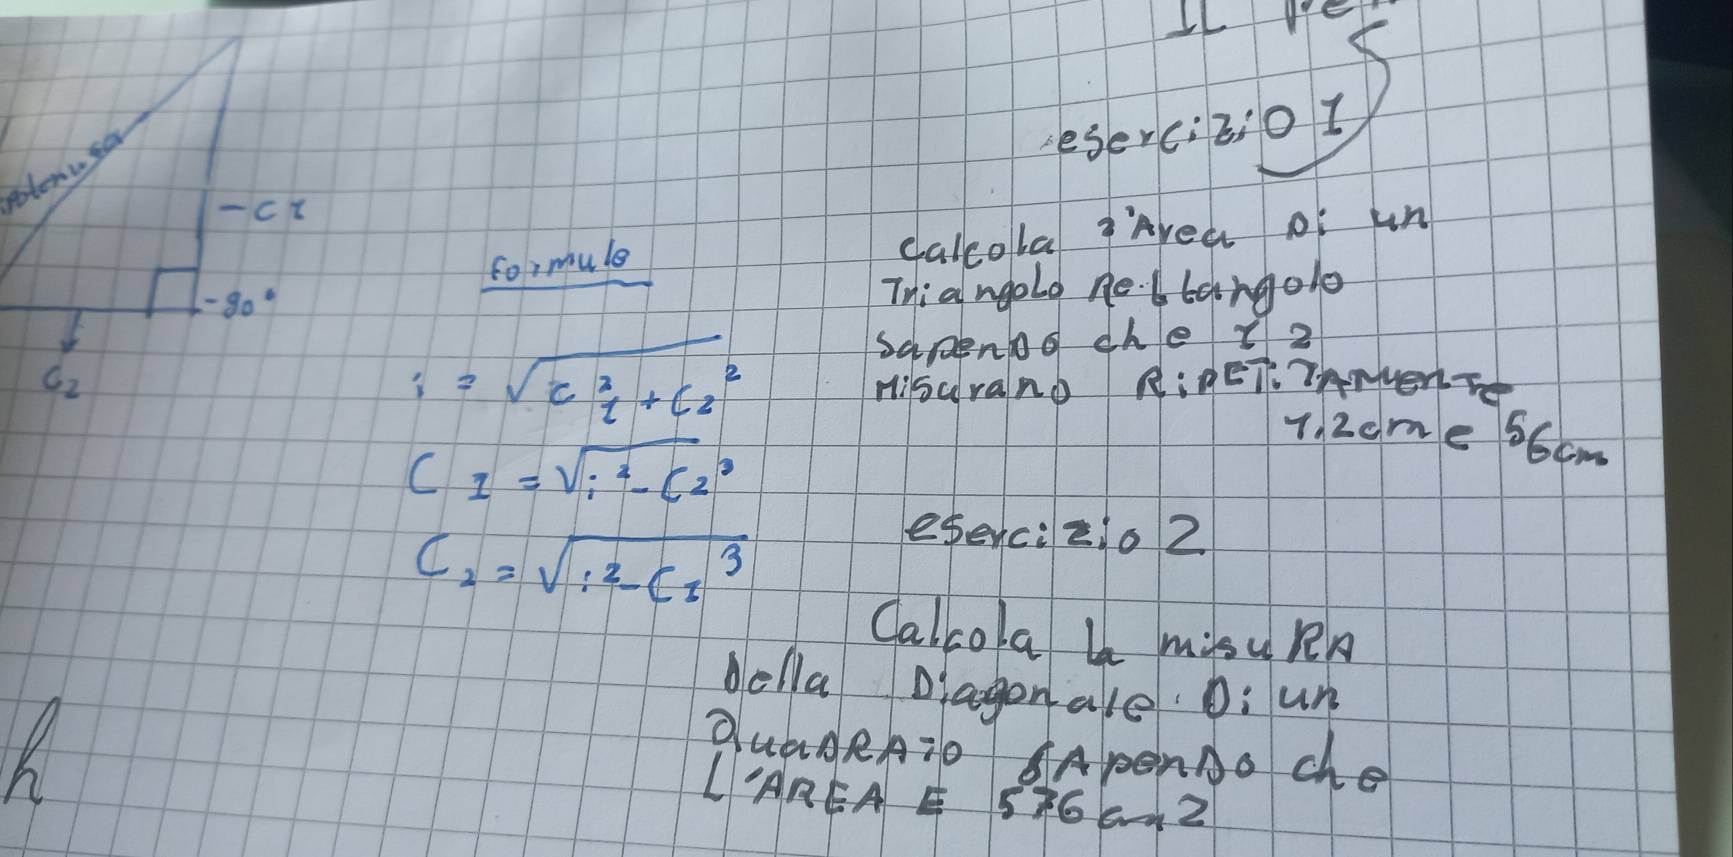 ipotenusa
-C1
-90°
C2
Formule
i = √C1² + C2²
C1 = √i² - C2³
C2 = √i² - C1³
esercizio 1
Calcola l'Area Di un
Triangolo Rettangolo
Sapendo che i 2
Misurano RiPETiTAMENTe
4,2cm e 56cm
esercizio 2
Calcola la misuRA
Della Diagonale Di un
QuaDRATo SApenDo che
L'AREA E 576cm2
h